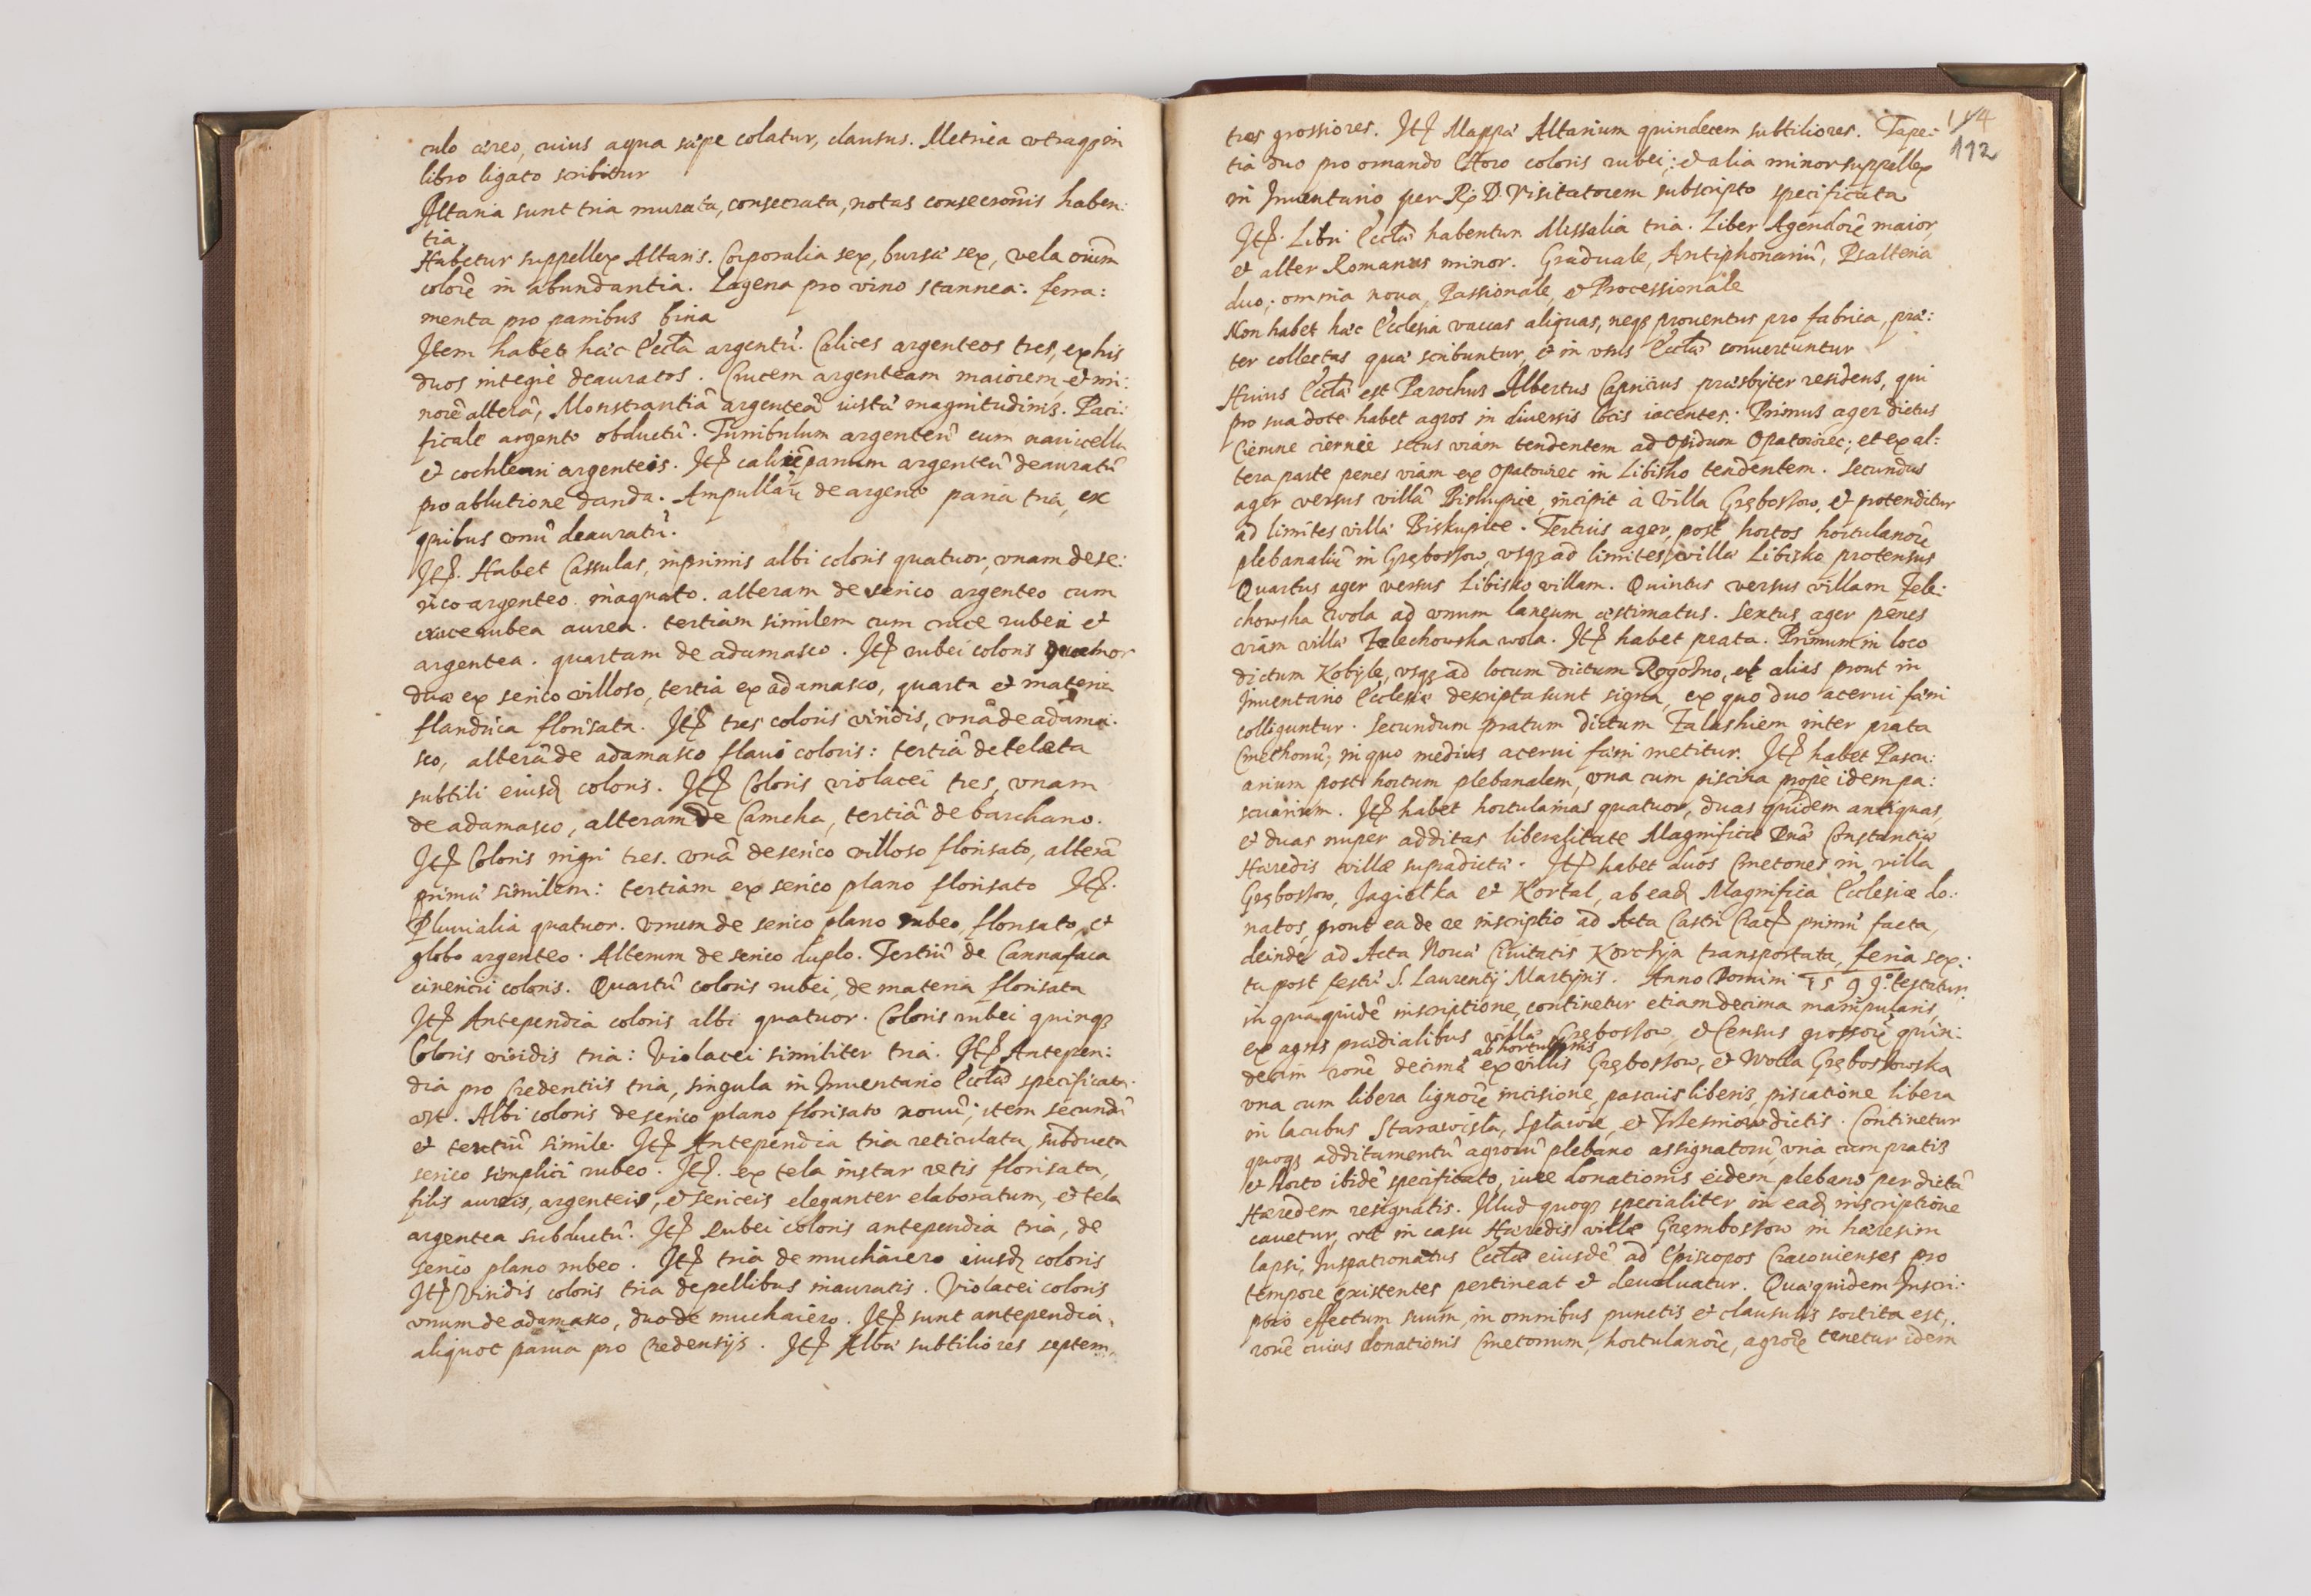 culo æreo, cuius aqua sæpe colatur, clausus. Metrica vtraqȝ in
libro ligato scribitur
Altaria sunt tria murata, consecrata, notas consecrõnis haben:
tia
Habetur suppellex Altaris. Corporalia sex, bursæ sex, vela oĩum
colorũ in abundantia. Lagena pro vino stannea. ferra:
menta pro panibus bina
Item habet hæc Eccła argentũ. Calices argenteos tres, ex his
duos integrè deauratos. Crucem argenteam maiorem et mi:
norẽ alterã, Monstrantiã argenteã iustæ magnitudinis. Paci:
ficale argento obductũ. Turribulum argenteũ cum nauicella
et cochleari argenteis. Itẽ calicẽ paruum argenteũ deauratũ
pro ablutione danda. Ampullarũ de argento paria tria, ex
quibus vnũ deauratũ.
Itẽ. Habet Cassulas, inprimis albi coloris quatuor, vnam de se:
rico argenteo. alteram de serico argenteo cum
cruce rubea aurea. tertiam similem cum cruce rubea et
argentea. quartam de adamasco. Itẽ rubei coloris quatuor
duæ ex serico villoso, tertia ex adamasco, quarta et materia
flandrica florisata. Itẽ tres coloris viridis, vnã de adama:
sco, alterã de adamasco flaui coloris: tertiã de teleta
subtili eiusd coloris. Itẽ Coloris violacei tres, vnam
de adamasco, alteram de Camcha, tertiã de barchano.
Itẽ Coloris nigri tres. vnã de serico villoso florisato, alterã
primæ similem: tertiam ex serico plano florisato Itẽ.
Pluuialia quatuor. vnum de serico plano rubeo, florisato, et
globo argenteo. Alterum de serico duplo. Tertiũ de Cannafaca
cinericii coloris. Quartũ coloris rubei, de materia florisata
Itẽ Antependia coloris albi quatuor. Coloris rubei quinqȝ
Coloris viridis tria: Violacei similiter tria. Itẽ Antepen:
dia pro Credentiis tria, singula in Inuentario Ecclæ specificata.
vst. Albi coloris de serico plano florisato nouũ; item secundũ
et tertiũ simile. Itẽ Antependia tria reticulata, subducta
serico simplici rubeo. Itẽ. ex tela instar retis florisata,
filis aureis, argenteis, et sericeis eleganter elaboratum, et tela
argentea subductũ. Itẽ Rubei coloris antependia tria, de
serico plano rubeo. Itẽ tria de muchaiero eiusd coloris
Itẽ Viridis coloris tria de pellibus inauratis. Violacei coloris
vnum de adamasco, duo de muchaiero. Itẽ sunt antependia
aliquot parua pro Credensijs. Itẽ Albæ subtiliores septem,
114
112
tres grossiores. Itẽ Mappæ Altarium quindecem subtiliores. Tape:
tia duo pro ornando Choro coloris rubei; et alia minor suppellex
in Inuentario per R. D. Visitatorem subscripto specificata
Itẽ. Libri Ecclæ habentur. Missalia tria. Liber Agendorũ maior,
et alter Romanus minor. Graduale, Antiphonariũ, Psalteria
duo; omnia noua, Passionale, et Processionale
Non habet hæc Ecclesia vaccas aliquas, neqȝ prouentus pro fabrica, præ:
ter collectas quæ scribuntur, et in vsus Ecclæ conuertuntur
Huius Ecclæ est Parochus Albertus Capricius præsbyter residens, qui
pro sua dote habet agros in diuersis locis iacentes. Primus ager dictus
Ciemne ciernie secus viam tendentem ad Opidum Opatowiec; et ex al:
tera parte penes viam ex Opatowiec in Libisko tendentem. Secundus
ager versus villã Biskupice, incipit à Villa Grębossow, et protenditur
ad limites villæ Biskupice. Tertius ager, post hortos hortulanorũ
plebanaliũ in Grębossow, vsqȝ ad limites villæ Libisko protensus
Quartus ager versus Libisko villam. Quintus versus villam Zele:
chowska wola ad vnum laneum æstimatus. Sextus ager penes
viam villæ Zelechowska wola. Itẽ habet prata. Primum in loco
dictum Kobyle, vsqȝ ad locum dictum Rogoźno, et alias prout in
Inuentario Ecclesiæ descripta sunt signa, ex quo duo acerui fæni
colliguntur. Secundum pratum dictum Zalaskiem inter prata
Cmethonũ, in quo medius acerui fæni metitur. Itẽ habet Pascu:
arium post hortum plebanalem, vna cum piscina propè idem pa:
scuarium. Itẽ habet hortulanias quatuor, duas quidem antiquas,
et duas nuper additas liberalitate Magnificæ Dnæ Constantiæ
Hæredis villæ supradictæ. Itẽ habet duos Cmetones in villa
Grębossow, Jagiełka et Kortal, ab ead Magnifica Ecclesiæ do:
natos, prout ea de re inscriptio ad Acta Castri Crac primũ facta,
deinde ad Acta Nouæ Ciuitatis Korchyn transportata, feria sex:
ta post festũ S. Laurentij Martyris. Anno Domini 1599º. testatur.
in qua quidẽ inscriptione, continetur etiam decima manipularis,
ex agris prædialibus villæ Grębossow, et Census grossorũ quin:
decim ronẽ decimæ ab hortulanis ex villis Grębossow, et Wolia Grębossowska
vna cum libera lignorũ incisione, pascuis liberis, piscatione libera
in lacubus Starawisła, Spławie, et dictis. Continetur
quoqȝ additamentũ agrorũ plebano assignatorũ, vna cum pratis
et horto ibidẽ specificato, iure donationis eidem plebano per dictã
Hæredem resignatis. Illud quoqȝ specialiter in ead inscriptione
cauetur, vt in casu Hæredis villæ Grembossow in hæresim
lapsi, Iuspatronatus Ecclæ eiusdẽ ad Episcopos Cracouienses pro
tempore existentes pertineat et deuoluatur. Quæ quidem Inscri:
ptio effectum suum, in omnibus punctis et clausulis sortita est,
ronẽ cuius donationis Cmetonum, hortulanorũ, agrorũ tenetur idem